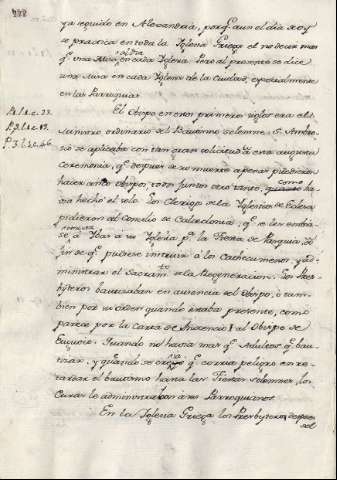 998
ya seguido en Alexandria, porq̃ aun el dia de oy
se practica en toda la Iglesia Griega el no decir mas
q̃ una Misa al dia en cada Iglesia. Pero al presente se dice
una sola en cada Iglesia de la Ciudad, especialmente
en las Parroquias
El Obispo en esos primeros siglos era el
Ministro ordinario del Bautismo solemne. S. Ambro
sio se aplicaba con tan gran solicitud á esta augusta
ceremonia, q̃ despues de su muerte apenas pudieron
hacer cinco Obispos, todos juntos otro tanto, como ha
via hecho el solo. Los Clerigos de la Iglesia de Edesa
pidieron al Concilio de Calcedonia, q̃ se les embia
se á Ibas á su Iglesia pª la Fiesta de Pasqua, á
fin de q̃ pudiese instruir a los Cathecumenos y ad
ministrar el Sacramto de la Regeneracion. Los Pres
byteros bautizaban en ausencia del Obispo, ó tam
bien por su orden quando estaba presente, como
parece por la Carta de Inocencio I al Obispo de
Eugubio. Quando no havia mas q̃ Adultos q̃ bau
tizar, y quando se creia q̃ corria peligro en re
tardar el bautismo hasta las Fiestas solemnes, los
Curas le administraban á sus Parroquianos.
En la Iglesia Griega los Presbyteros despues
del